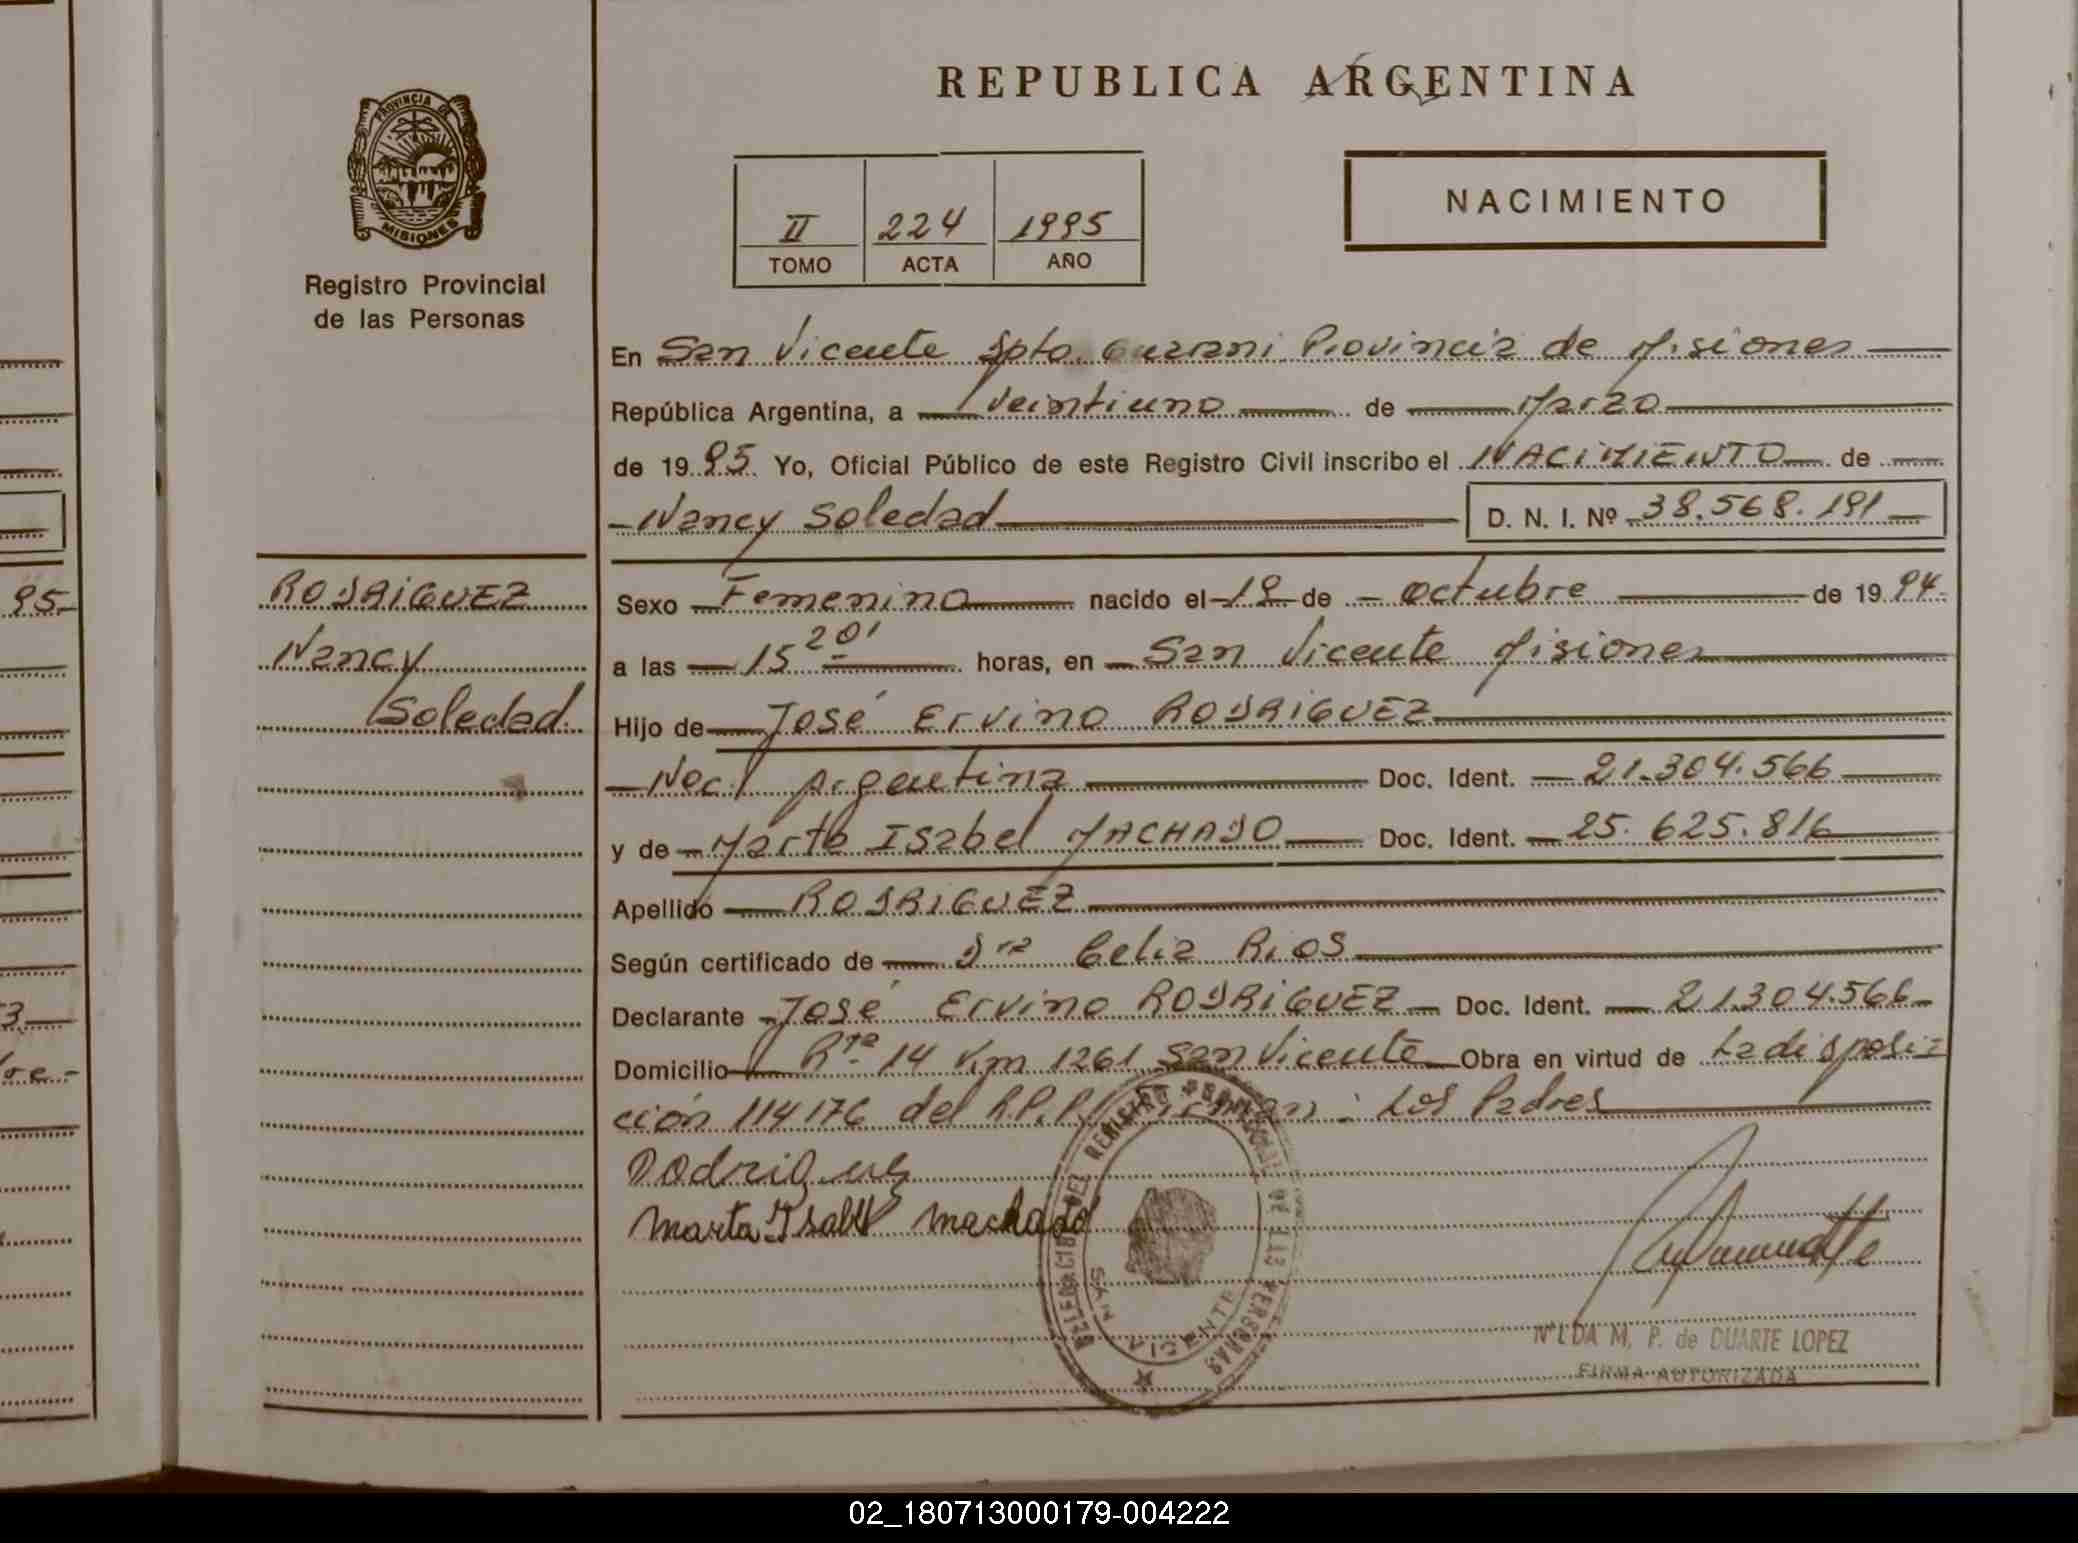 REPUBLICA ARGENTINA
PROVINCIA DE
MISIONES
Registro Provincial
de las Personas
II 224 1995
TOMO ACTA AÑO
NACIMIENTO
En San Vicente Dpto. Guarani Provincia de Misiones
República Argentina, a Veintiuno de Marzo
de 1995 Yo, Oficial Público de este Registro Civil inscribo el NACIMIENTO de
Nancy Soledad D. N. I. Nº 38.568.191
Sexo Femenino nacido el 19 de octubre de 1994.
a las 15 20' horas, en San Vicente Misiones
Hijo de José Ervino RODRIGUEZ
Nac. Argentina Doc. Ident. 21.304.566
y de Marta Isabel MACHADO Doc. Ident. 25.625.816
Apellido RODRIGUEZ
Según certificado de Dra Celia Rios
Declarante José Ervino RODRIGUEZ Doc. Ident. 21.304.566
Domicilio Rta 14 Km 1261 San Vicente Obra en virtud de La disposi=
ción 114176 del R.P.P. Firman: Los Padres
Rodriguez
Marta Isabel Machado
RODRIGUEZ
Nancy
Soledad.
DELEGACION DEL REGISTRO PROVINCIAL DE LAS PERSONAS
SAN VICENTE
NILDA M. P. de DUARTE LOPEZ
FIRMA AUTORIZADA
95.
3
bre.
02_180713000179-004222